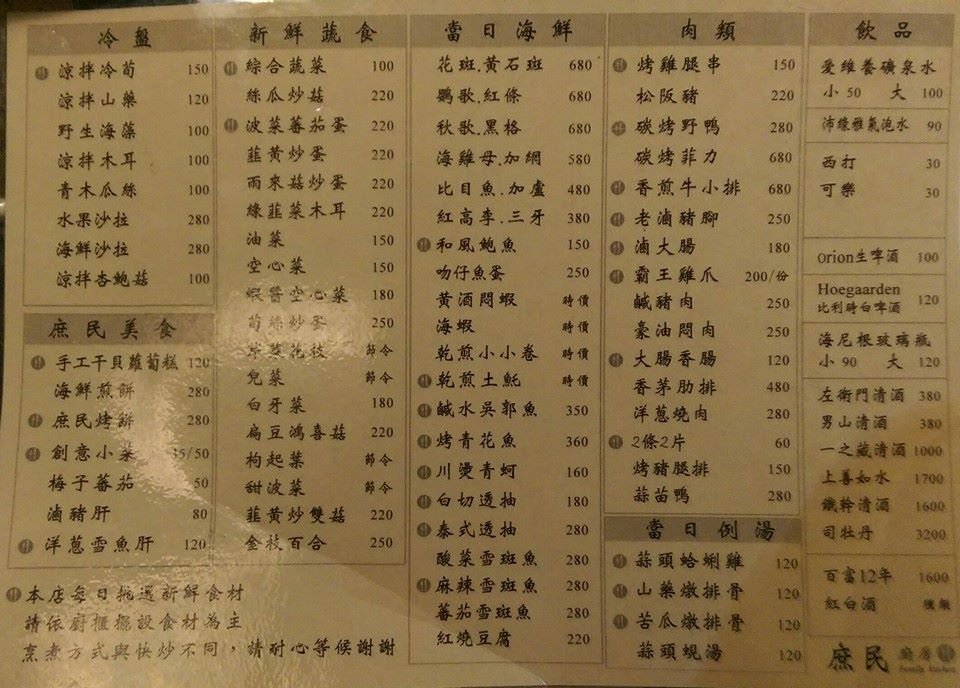 冷盤
涼拌冷荀 150
涼拌山藥 120
野生海藻 100
涼拌木耳 100
青木瓜絲 100
水果沙拉 280
海鮮沙拉 280
涼拌杏鮑菇 100
庶民美食
手工干貝蘿蔔糕 120
海鮮煎餅 280
庶民烤餅 280
創意小菜 35/50
梅子蕃茄 50
滷豬肝 80
洋蔥雪魚肝 120
新鮮蔬食
綜合蔬菜 100
絲瓜炒菇 220
波菜蕃茄蛋 220
韮黃炒蛋 220
雨來菇炒蛋 220
綠韮菜木耳 220
油菜 150
空心菜 150
蝦醬空心菜 180
荀絲炒蛋 250
芹菜花枝 節令
兒菜 節令
白牙菜 180
扁豆鴻喜菇 220
枸起葉 節令
甜波菜 節令
韮黃炒雙菇 220
金枝百合 250
當日海鮮
花斑.黃石斑 680
鸚歌.紅條 680
秋歌.黑格 680
海雞母.加網 580
比目魚.加盧 480
紅高李.三牙 380
和風鮑魚 150
吻仔魚蛋 250
黃酒悶蝦 時價
海蝦 時價
乾煎小小卷 時價
乾煎土魠 時價
鹹水吳郭魚 350
烤青花魚 360
川燙青蚵 160
白切透抽 180
泰式透抽 280
酸菜雪斑魚 280
麻辣雪斑魚 280
蕃茄雪斑魚 280
紅燒豆腐 220
肉類
烤雞腿串 150
松阪豬 220
碳烤野鴨 280
碳烤菲力 680
香煎牛小排 680
老滷豬腳 250
滷大腸 180
霸王雞爪 200/份
鹹豬肉 250
豪油悶肉 250
大腸香腸 120
香茅肋排 480
洋蔥燒肉 280
2條2片 60
烤豬腿排 150
蒜苗鴨 280
當日例湯
蒜頭蛤蜊雞 120
山藥燉排骨 120
苦瓜燉排骨 120
蒜頭蜆湯 120
飲品
愛維養礦泉水
小 50 大 100
沛綠雅氣泡水 90
西打 30
可樂 30
Orion生啤酒 100
Hoegaarden
比利時白啤酒 120
海尼根玻璃瓶
小 90 大 120
左衛門清酒 380
男山清酒 380
一之藏清酒 1000
上善如水 1700
鐵幹清酒 1600
司牡丹 3200
百富12年 1600
紅白酒
本店每日挑選新鮮食材
請依廚櫃擺設食材為主
烹煮方式與快炒不同，請耐心等候謝謝
庶民廚房